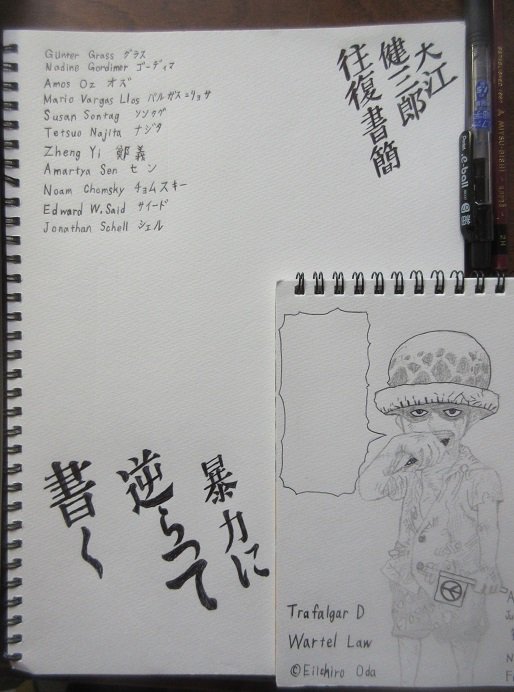 Günter Grass グラス
Nadine Gordimer ゴーディマ
Amos Oz オズ
Mario Vargas Llos バルガス=リョサ
Susan Sontag ソンタグ
Tetsuo Najita ナジタ
Zheng Yi 鄭義
Amartya Sen セン
Noam Chomsky チョムスキー
Edward W. Said サイード
Jonathan Schell シェル
大江
健三郎
往復書簡
暴力に
逆らって
書く
Trafalgar D
Wartel Law
©Eiichiro Oda
e-ball